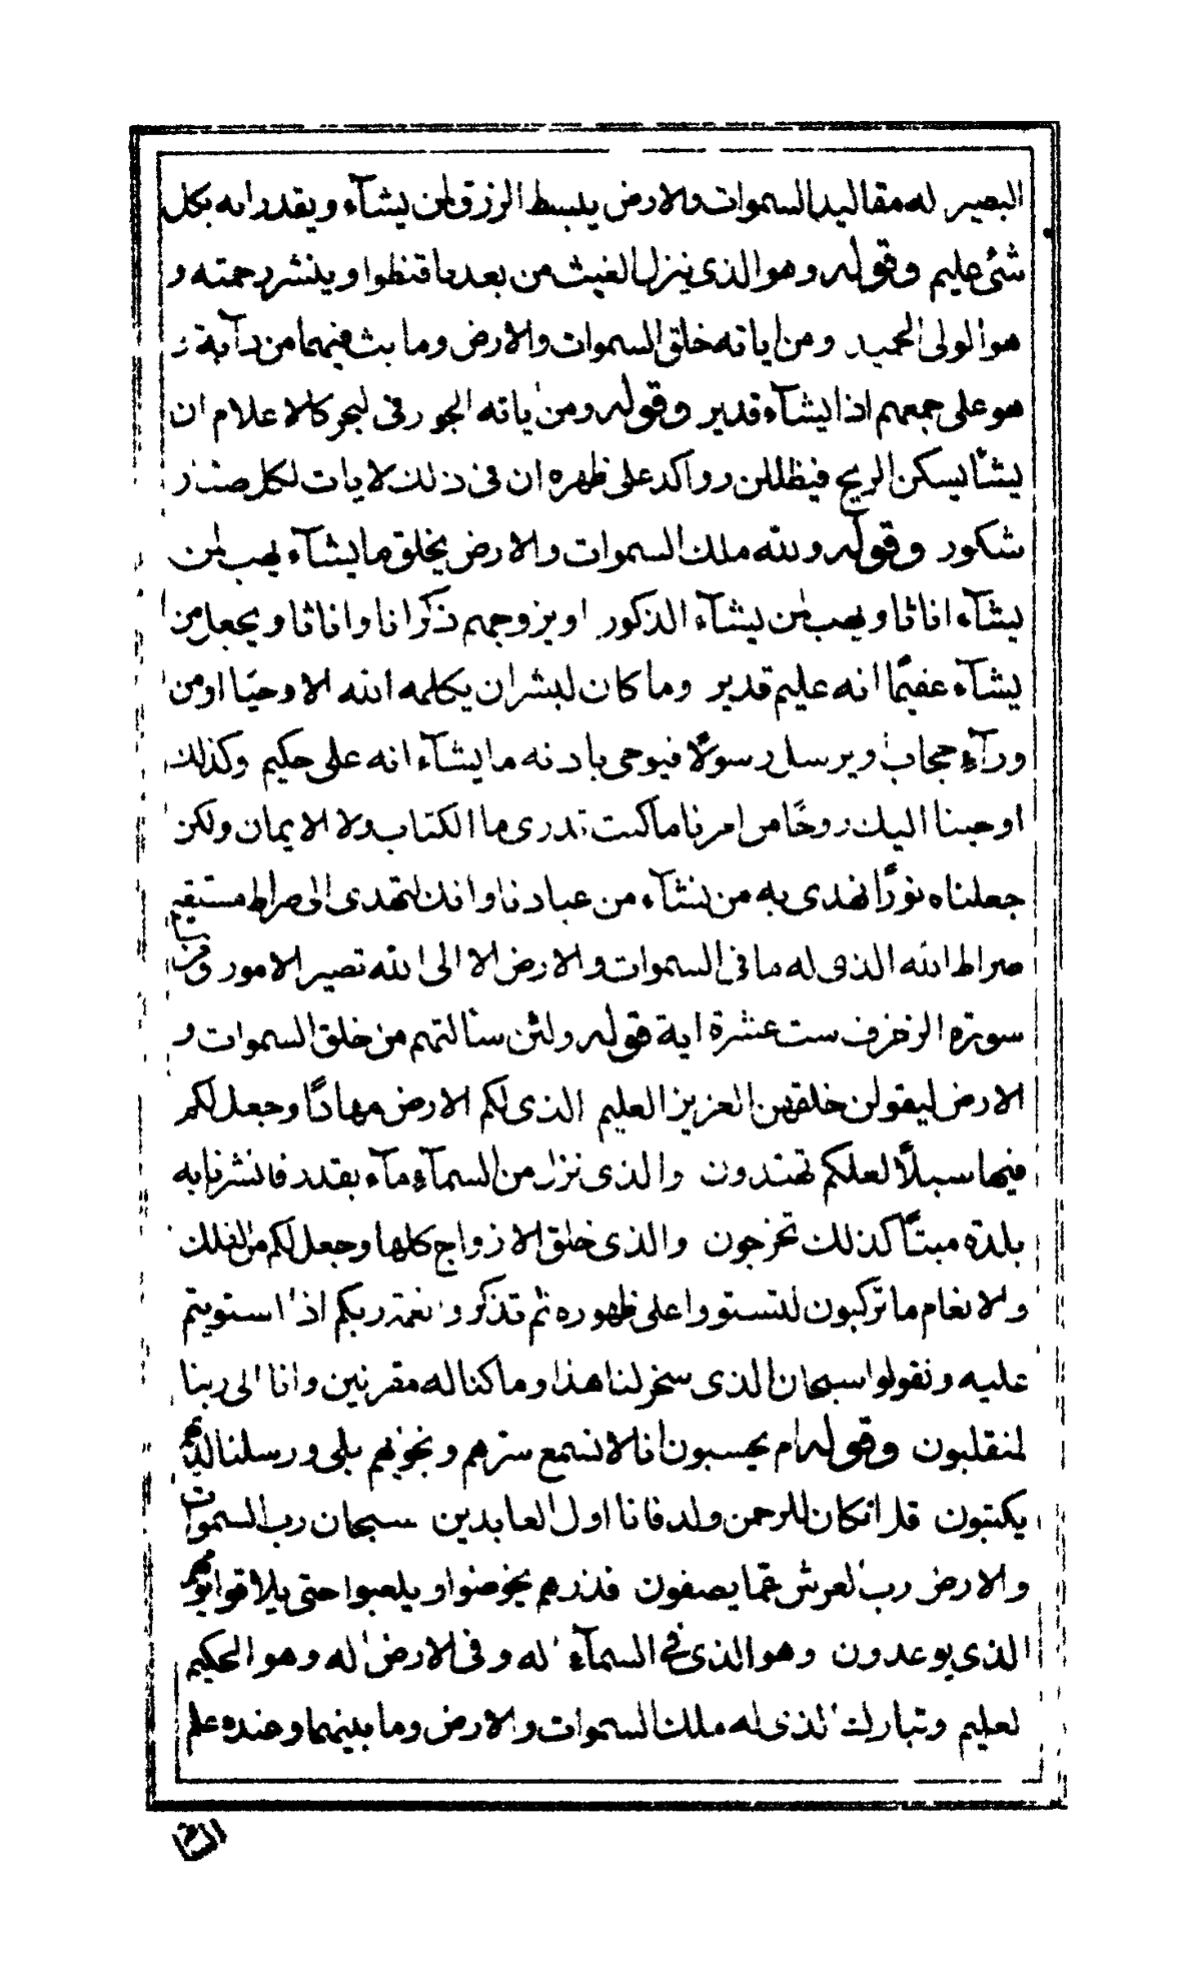 البصير له مقاليد السموات والارض يبسط الرزق لمن يشآء ويقدر انه بكل
شئ عليم وقوله وهو الذى ينزل الغيث من بعد ما قنطوا وينشر رحمته و
هو الولى الحميد ومن اياته خلق السموات والارض وما بث فيهما من دآبة و
هو على جمعهم اذا يشآء قدير وقوله ومن اياته الجوار فى البحر كالاعلام ان
يشأ يسكن الريح فيظللن رواكد على ظهره ان فى ذلك لايات لكل صبار
شكور وقوله ولله ملك السموات والارض يخلق ما يشآء يهب لمن
يشآء اناثا ويهب لمن يشآء الذكور او يزوجهم ذكرانا واناثا ويجعل من
يشآء عقيمًا انه عليم قدير وما كان لبشر ان يكلمه الله الا وحيًا او من
ورآءِ حجاب او يرسل رسولًا فيوحى باذنه ما يشآء انه على حكيم وكذلك
اوحينا اليك روحًا من امرنا ما كنت تدرى ما الكتاب ولا الايمان ولكن
جعلناه نورًا نهدى به من نشآء من عبادنا وانك لتهدى الى صراط مستقيم
صراط الله الذى له ما فى السموات والارض الا الى الله تصير الامور ومن
سورة الزخرف ست عشرة اية قوله ولئن سألتهم من خلق السموات و
الارض ليقولن خلقهن العزيز العليم الذى لكم الارض مهادًا وجعل لكم
فيها سبلًا لعلكم تهتدون والذى نزل من السمآءِ مآء بقدر فانشرنا به
بلدة ميتًا كذلك تخرجون والذى خلق الازواج كلها وجعل لكم من الفلك
والانعام ما تركبون لتستووا على ظهوره ثم تذكروا نعمة ربكم اذا استويتم
عليه وتقولوا سبحان الذى سخر لنا هذا وما كنا له مقرنين وانا الى ربنا
لمنقلبون وقوله ام يحسبون انا لا نسمع سرهم ونجويهم بلى ورسلنا لديهم
يكتبون قل ان كان للرحمن ولد فانا اول العابدين سبحان رب السموات
والارض رب العرش عمّا يصفون فذرهم يخوضوا ويلعبوا حتى يلاقوا يومهم
الذى يوعدون وهو الذى فى السمآءِ اله وفى الارض اله وهو الحكيم
لعليم وتبارك الذى له ملك السموات والارض وما بينهما وعنده علم